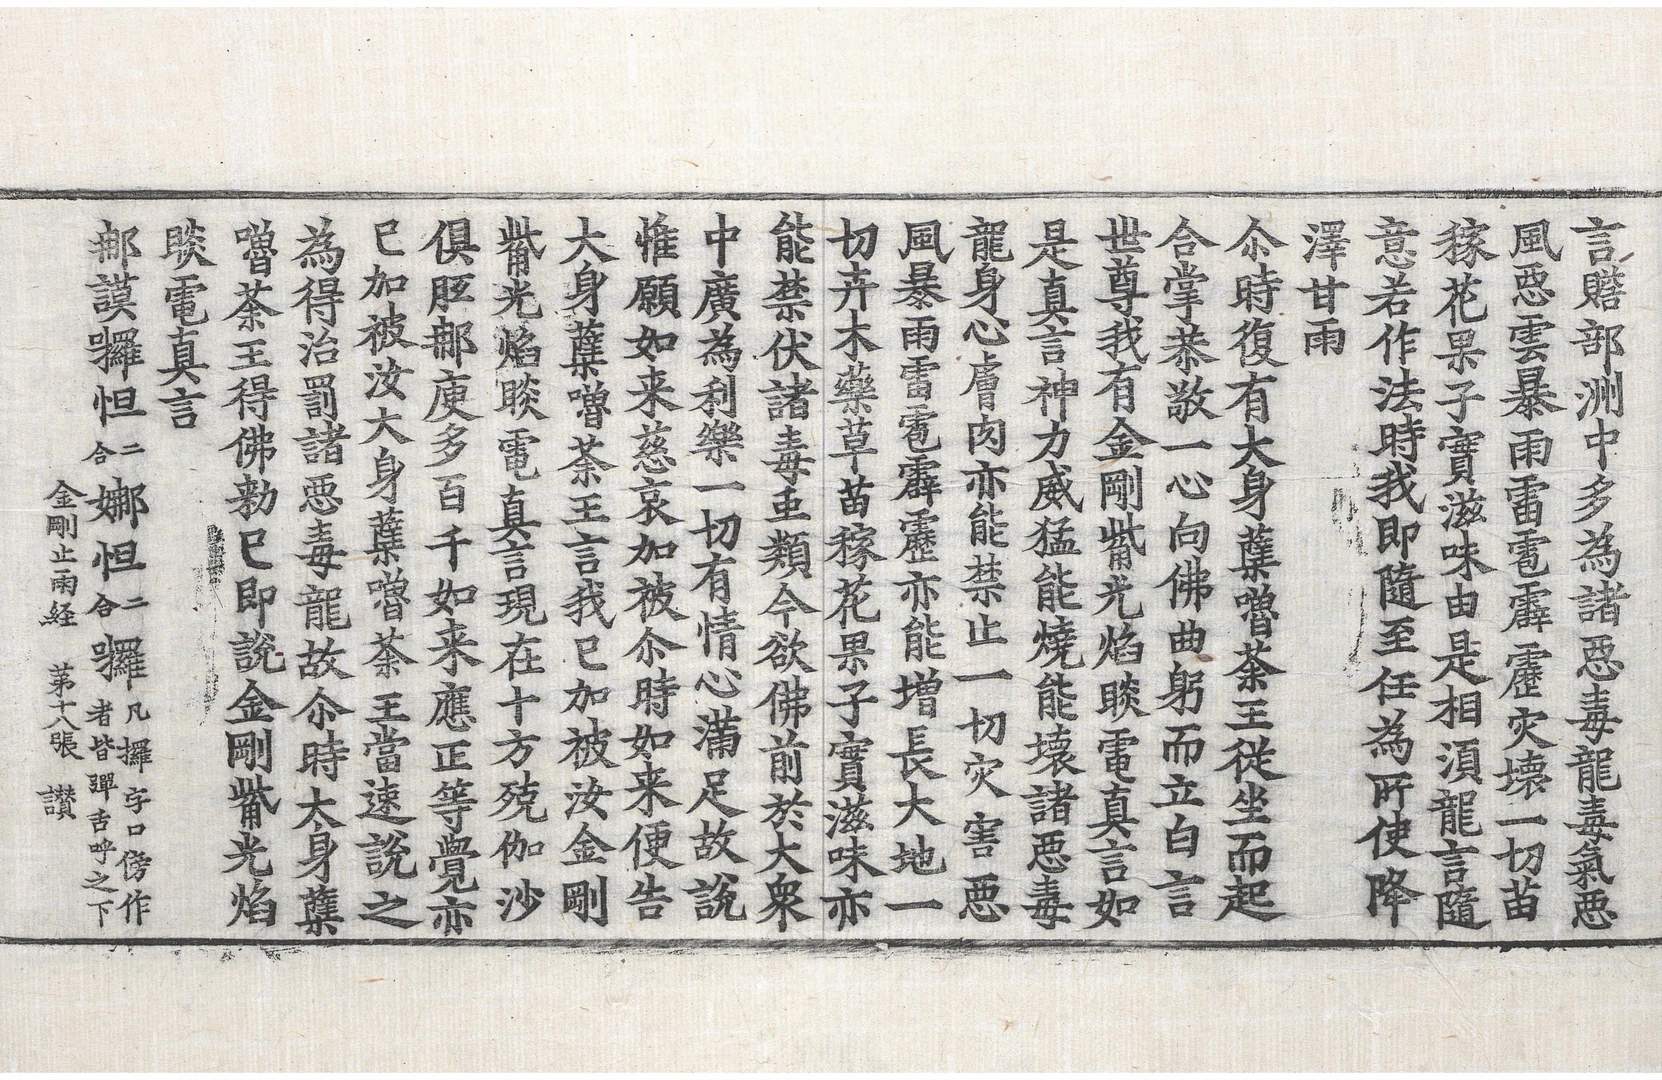 言贍部洲中多為諸惡毒龍毒氣惡
風惡雲暴雨雷雹霹靂灾壊一切苗
稼花果子實滋味由是相湏龍言隨
意若作法時我即隨至任為所使降
澤甘雨
尒時復有大身蘖嚕荼王従坐而起
合掌恭敬一心向佛曲躬而立白言
世尊我有金剛觜光焰睒電真言如
是真言神力威猛能燒能壊諸惡毒
龍身心膚肉亦能禁止一切灾害惡
風暴雨雷雹霹靂亦能增長大地一
切卉木藥草苗稼花果子實滋味亦
能禁伏諸毒䖝類今欲佛前於大衆
中廣為利樂一切有情心滿足故說
惟願如来慈哀加被尒時如来便告
大身蘖嚕荼王言我已加被汝金剛
觜光焰睒電真言現在十方殑伽沙
俱胝那庾多百千如来應正等覺亦
已加被汝大身蘖嚕荼王當速說之
為得治罰諸惡毒龍故尒時大身蘖
嚕荼王得佛勑已即說金剛觜光焰
睒電真言
那謨囉怛二合娜怛二合囉凡攞字口傍作者皆彈舌呼之下
金剛止雨経 第十八張 讃